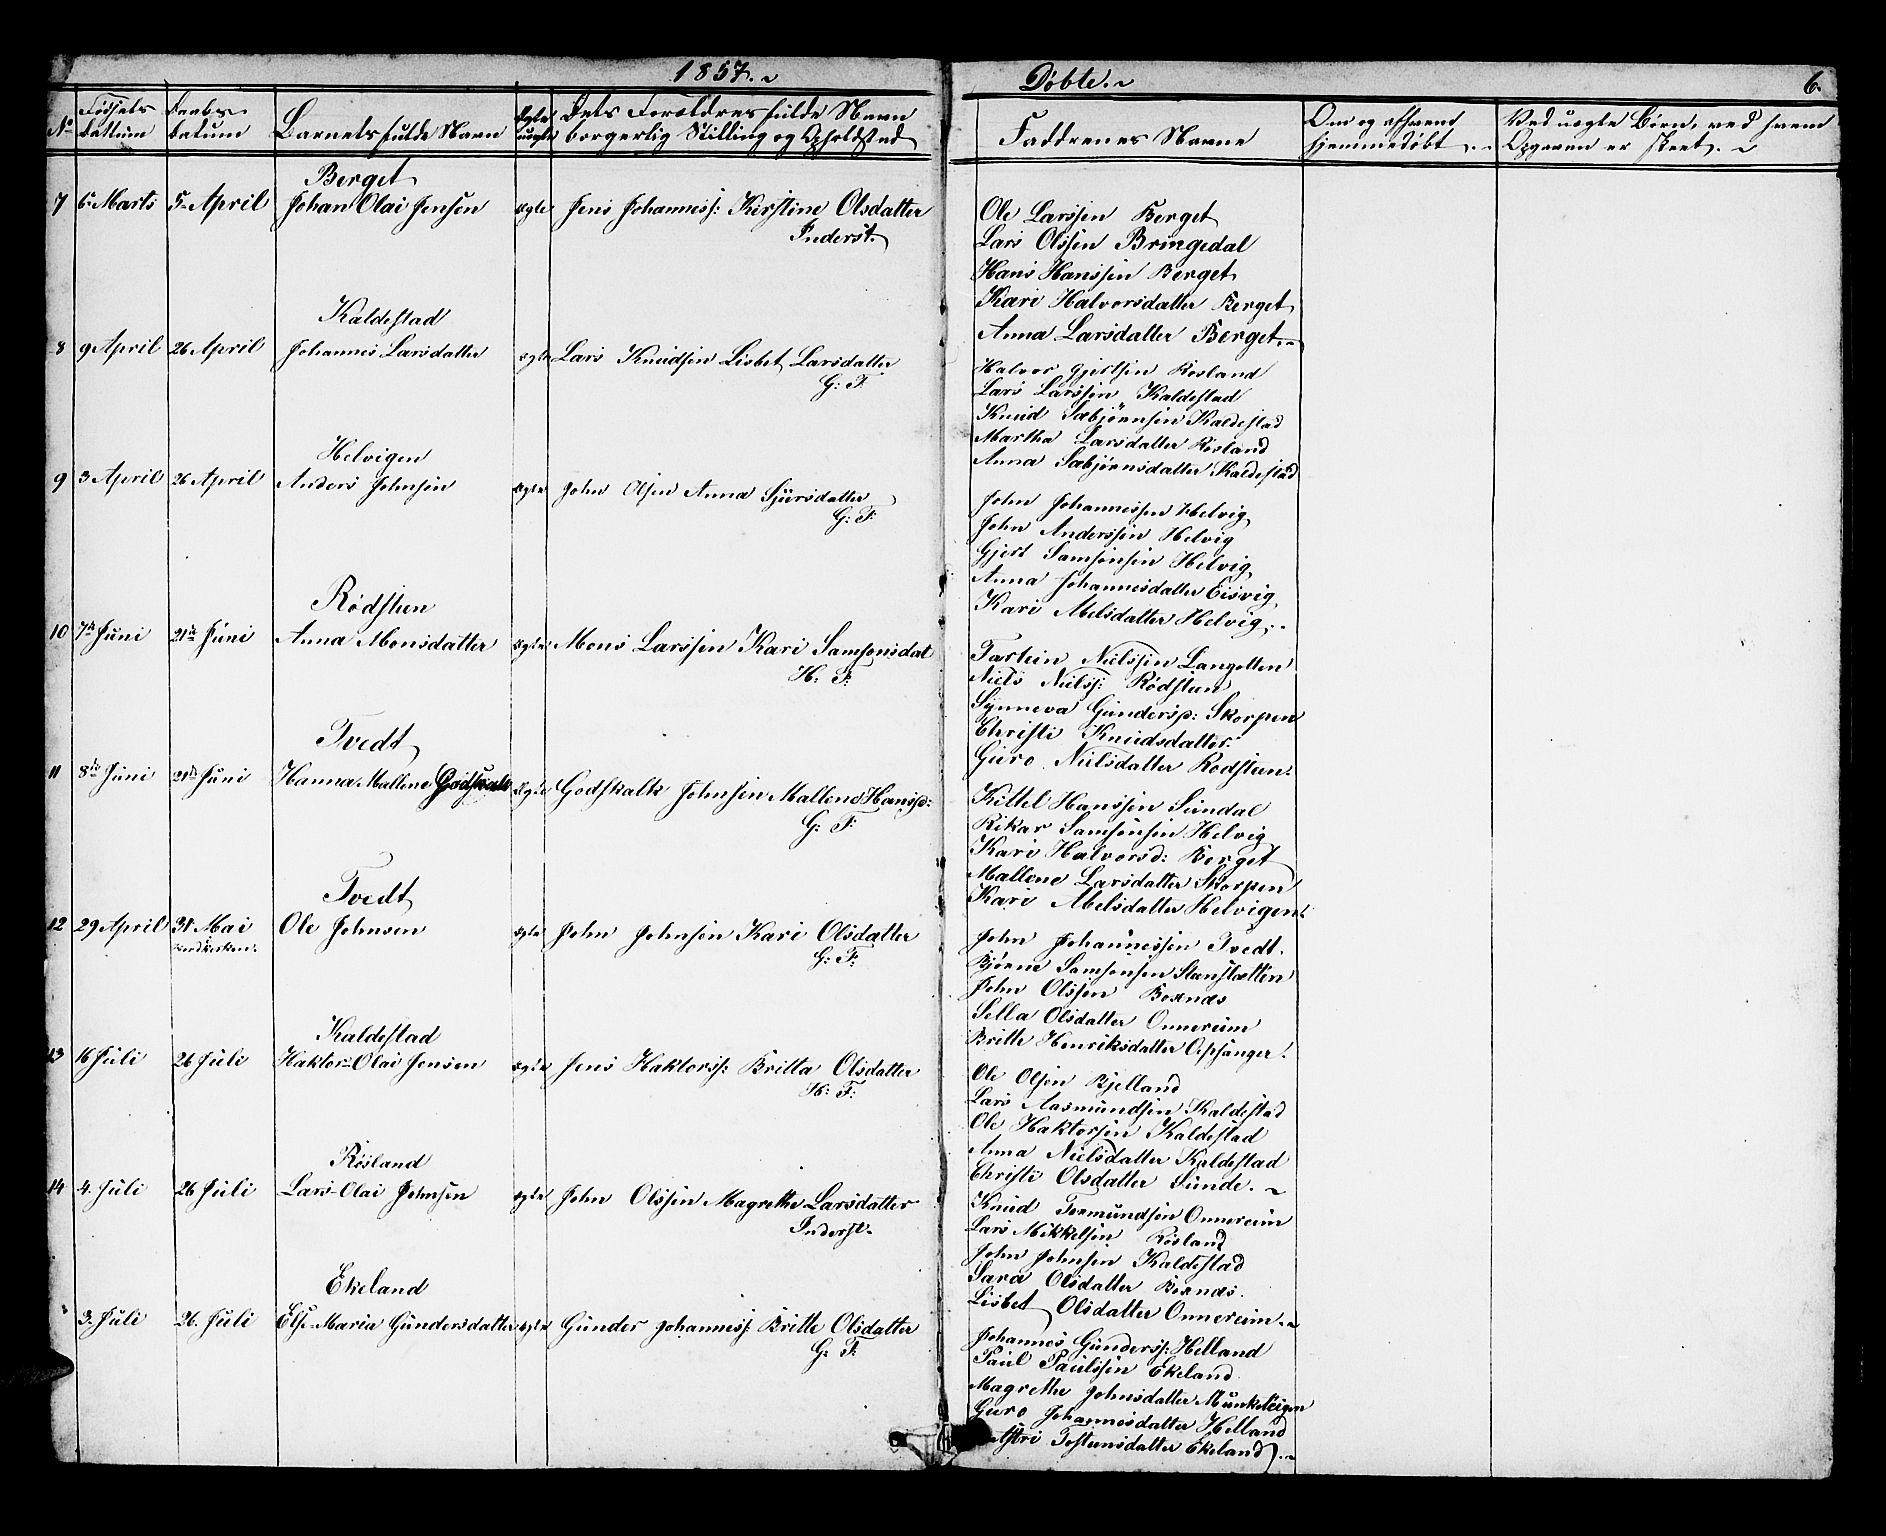 1857.
Døbte.
6.
No
Fødsels dattum
Daabs datum
Barnets fulde Navn
Ægte uægte
Dets Forældres fulde Navn borgerlig Stilling og Opholdsted
Faddrenes Navne
Om og af hvem hjemmedøbt.
Ved uægte Børn, ved hvem Opgaven er skeet.
Berget
7 6 Marts 5 April Johan Olai Jensen ægte Jens Johanness: Kirstine Olsdatter
Inderst.
Ole Larssen Berget
Lars Olssen Bringedal
Hans Hanssen Berget
Kari Halvorsdatter Berget
Anna Larsdatter Berget.
Kaldestad
8 9 April 26 April Johannes Larsdatter ægte Lars Knudsen Lisbet Larsdatter
G: F.
Halvor Gjertsen Rosland
Lars Larssen Kaldestad
Knud Sæbjørnsen Kaldestad
Martha Larsdatter Rosland
Anna Sæbjørnsdatter Kaldestad
Helvigen
9 3 April 26 April Anders Johnsen ægte John Olsen Anna Sjursdatter
G: F:
John Johannessen Helvig
John Anderssen Helvig
Gjert Samsonsen Helvig
Anna Johannesdatter Eisvig
Kari Melsdatter Helvig.
Rødsteen
10 7de Juni 21de Juni Anna Monsdatter ægte Mons Larssen Kari Samsonsdat
H: F:
Tostein Nielssen Langotten
Niels Nielss: Rødsteen
Synneva Gundersd: Skorpen
Christi Knudsdatter.
Guro Nielsdatter Rodsteen.
Tvedt
11 8de Juni 21de Juni Hanna Mallene Godskalk ægte Godskalk Johnsen Mallene Hansd:
G: F:
Kittel Hanssen Sundal
Rikar Samsonsen Helvig
Kari Halvorsd: Berget
Mallene Larsdatter Skorpen
Kari Melsdatter Helvigen.
Tvedt
12 29 April 31 Mai Ole Johnsen ægte John Johnsen Kari Olsdatter
G: F:
John Johannessen Tvedt.
Bjørne Samsonsen Steenstætten
John Olssen Boxnæs
Sella Olsdatter Onnereim
Britte Henriksdatter Opsanger.
Kaldestad
13 16 Juli 26 Juli Haktor Olai Jensen ægte Jens Haktorss: Britta Olsdatter
H: F:
Ole Olsen Bjelland
Lars Aasmundsen Kaldestad
Ole Haktorsen Kaldestad
Anna Nielsdatter Kaldestad
Christi Olsdatter Sunde.
Rosland
14 4. Juli 26 Juli Lars Olai Johnsen ægte John Olssen Magrethe Larsdatter
Inderst.
Knud Tormundsen Onnereim
Lars Mikkelsen Rosland
John Johnsen Kaldestad
Sara Olsdatter Boxnæs.
Lisbet Olsdatter Onnereim.
Ekeland
3. Juli 26. Juli Else Maria Gundersdatter ægte Gunder Johanness: Britte Olsdatter
G: F:
Johannes Gunderss: Helland
Paul Paulssen Ekeland
Magrethe Johnsdatter Munketeigen
Guro Johannesdatter Helland
Astri Tosteinsdatter Ekeland.